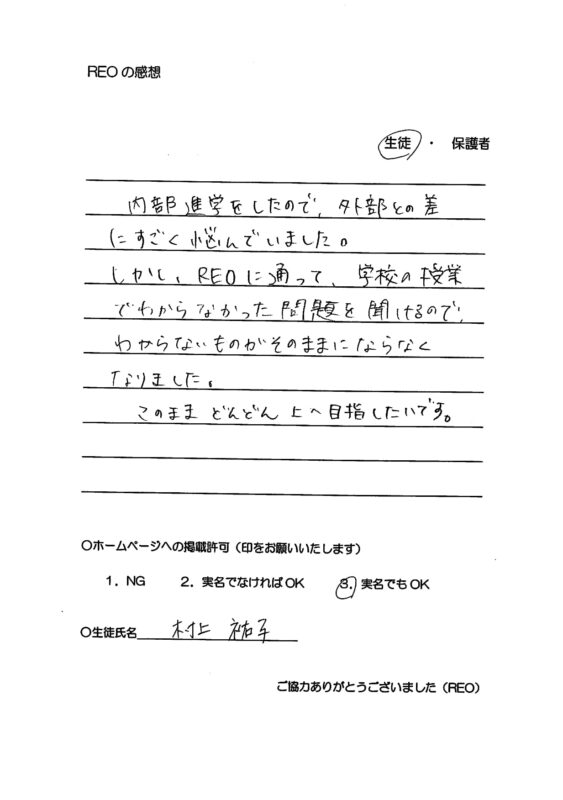 REOの感想
生徒 ・ 保護者
内部進学をしたので、外部との差
にすごく悩んでいました。
しかし、REOに通って、学校の授業
でわからなかった問題を聞けるので、
わからないものがそのままにならなく
なりました。
このまま どんどん 上へ目指したいです。
○ホームページへの掲載許可（印をお願いいたします）
1．NG 2．実名でなければOK 3．実名でもOK
○生徒氏名 村上 祐子
ご協力ありがとうございました（REO）